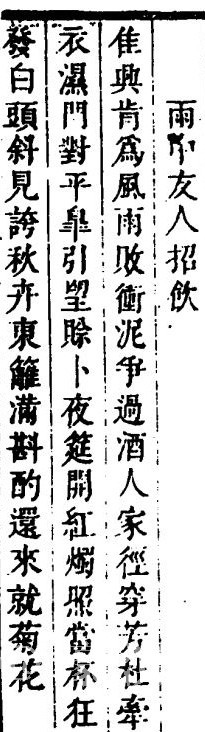 雨友人招飲
佳興肯爲風雨敗衝泥爭過酒人家徑穿芳杜牽
衣濕門對平臯引望賖卜夜筵開紅燭照當杯狂
發白頭斜見誇秋卉東籬滿斟酌還來就菊花